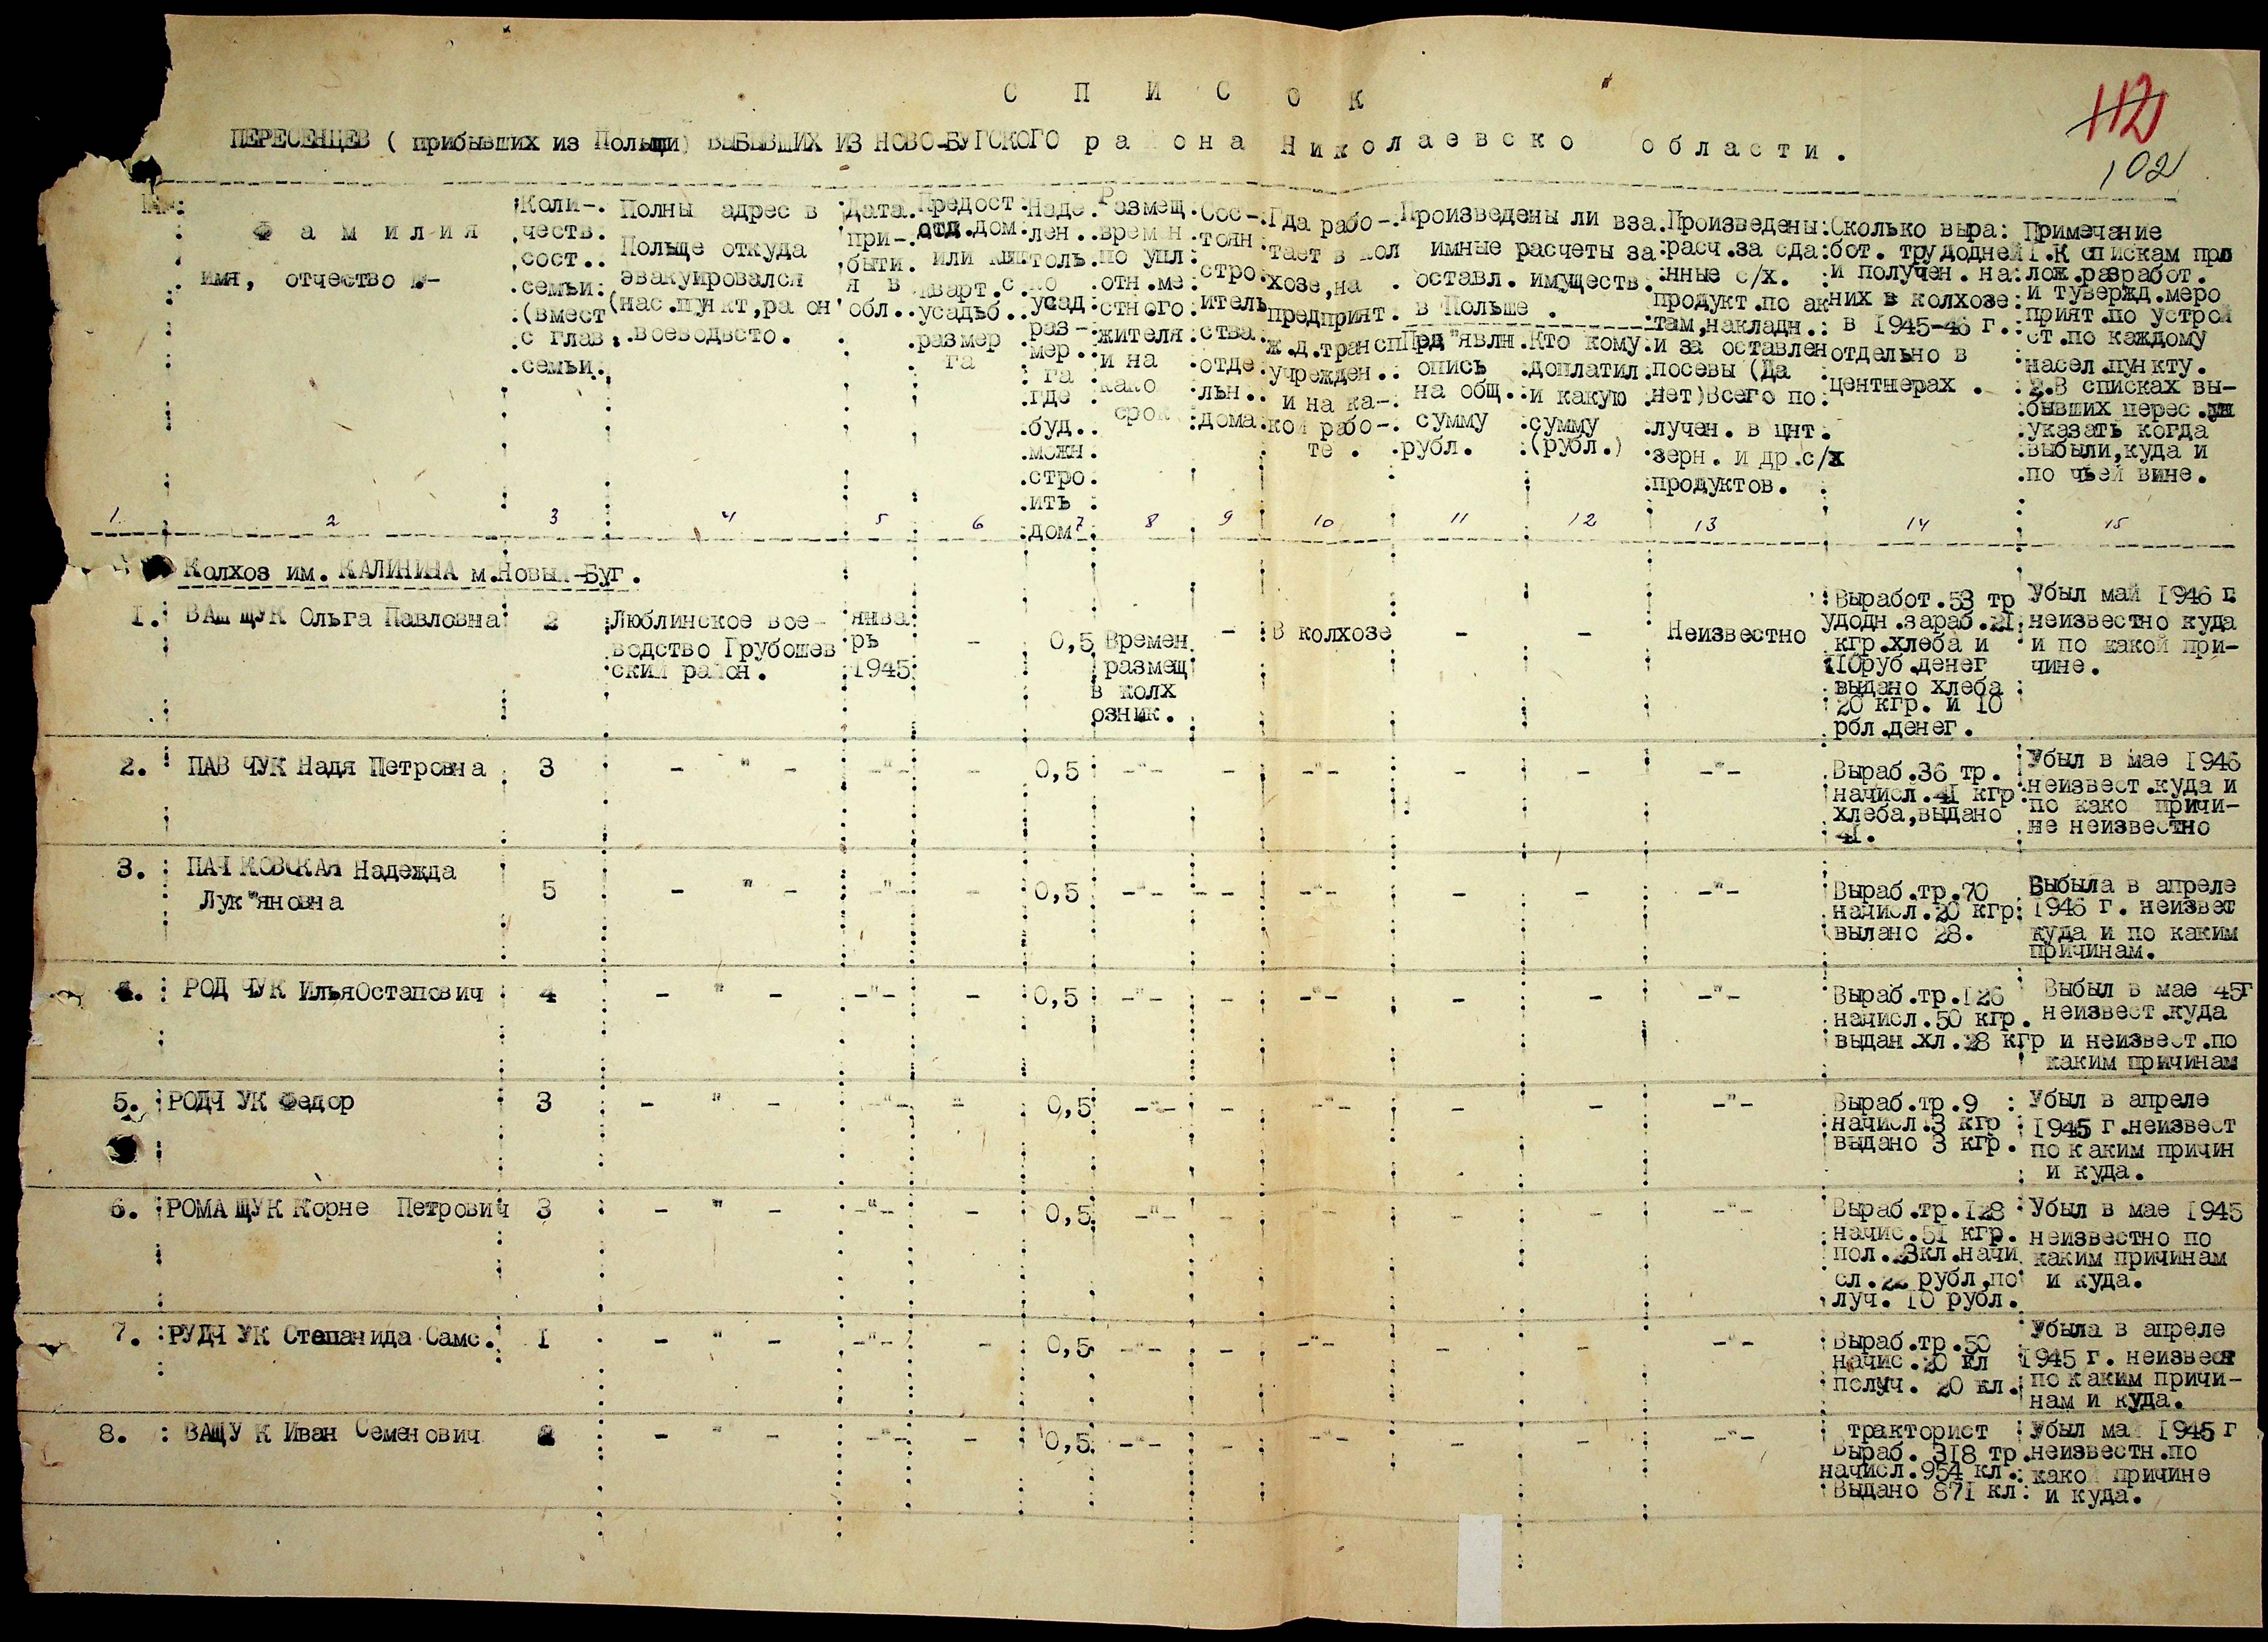 С П И С О К
112
ПЕРЕСЕНЦЕВ ( прибывших из Польщи) ВЫБЫВШИХ ИЗ НОВО-БУГСКОГО ра она Николаевско области.
102
Ф а м и л и я
имя, отчество
Коли-
честв.
сост..
семьи:
(вмест
с глав
семьи.
Полны адрес в
Польще откуда
эвакуировался
(нас.пункт,ра он
воеводьсто.
Дата
при-
быти
я в
обл..
Предост
отд.дом
или
кварт.с
усадьб..
размер
га
Наде
лен..
толь
ко
усад
раз-
мер..
га
где
буд..
можн
стро
ить
дом
Размещ
врем н
по упл
отн.ме
стного
жителя
и на
како
срок
Сос-
тоян
стро
итель
ства
отде
льн..
дома
Гда рабо-
тает в кол
хозе,на
предприят.
ж.д.трансп
учрежден..
и на ка-
кой рабо-
те .
Произведены ли вза
имные расчеты за
оставл. имуществ.
в Польше .
Пред"явлн.
опись
на общ.
сумму
рубл.
Кто кому
доплатил
и какую
сумму
(рубл.)
Произведены:
расч.за сда
нные с/х.
продукт.по ак
там,накладн.
и за оставлен
посевы (Да
нет)Всего по
лучен. в цнт.
зерн. и др.с/х
продуктов.
Сколько выра:
бот. трудодней
и получен. на
них в колхозе
в 1945-46 г.
отдельно в
центнерах .
Примечание
1.К спискам при
лож.разработ.
и тувержд.меро
прият.по устрой
ст.по каждому
насел.пункту.
2.В списках вы-
бывших перес.
указать когда
выбыли,куда и
по чьей вине.
1 2 3 4 5 6 7 8 9 10 11 12 13 14 15
Колхоз им. КАЛИНИНА м.Новый-Буг.
1. ВАШ ЩУК Ольга Павловна 2
Люблинское вое-
водство Грубошев
ский район.
янва
рь
1945
- 0,5
Времен
размещ
в колх
озник.
- В колхозе - - Неизвестно
Выработ.53 тр
удодн.зараб.21
кгр.хлеба и
10руб.денег
выдано хлеба
20 кгр. и 10
рбл.денег.
Убыл май 1946 г.
неизвестно куда
и по какой при-
чине.
2. ПАВ ЧУК Надя Петровна 3 - " - -"- - 0,5 -"- - -"- - - -"-
Выраб.36 тр.
начисл.41 кгр
хлеба,выдано
41.
Убыл в мае 1946
неизвест.куда и
по како причи-
не неизвестно
3. ПАЧ КОВСКАЯ Надежда
Лук"яновна
5 - " - -"- - 0,5 -"- - - -"- - - -"-
Выраб.тр.70
начисл.20 кгр
вылано 28.
Выбыла в апреле
1946 г. неизвес
куда и по каким
причинам.
4. РОД ЧУК ИльяОстапович 4 - " - -"- - 0,5 -"- - -"- - - -"-
Выраб.тр.126
начисл.50 кгр.
выдан.хл.28 кгр
Выбыл в мае 45г
неизвест.куда
и неизвест.по
каким причинам
5. РОДЧ УК Федор 3 - " - -"- - 0,5 -"- - -"- - - -"-
Выраб.тр.9
начисл.3 кгр
выдано 3 кгр.
Убыл в апреле
1945 г.неизвест
по каким причин
и куда.
6. РОМА ЩУК Корне Петрович 3 - " - -"- - 0,5 -"- - -"- - - -"-
Выраб.тр.128
начис.51 кгр.
пол.23кл.начи
сл.22 рубл.по
луч. 10 рубл.
Убыл в мае 1945
неизвестно по
каким причинам
и куда.
7. РУДЧ УК Степанида Самс. 1 - " - -"- - 0,5 -"- - -"- - - -"-
Выраб.тр.50
начис.20 кл
получ. 20 кл.
Убыла в апреле
1945 г. неизвест
по каким причи-
нам и куда.
8. ВАЩУ К Иван Семенович 2 - " - -"- - 0,5 -"- - -"- - - -"-
тракторист
Выраб. 318 тр.
начисл.954 кл.
Выдано 871 кл.
Убыл ма 1945 г
неизвестн.по
какой причине
и куда.